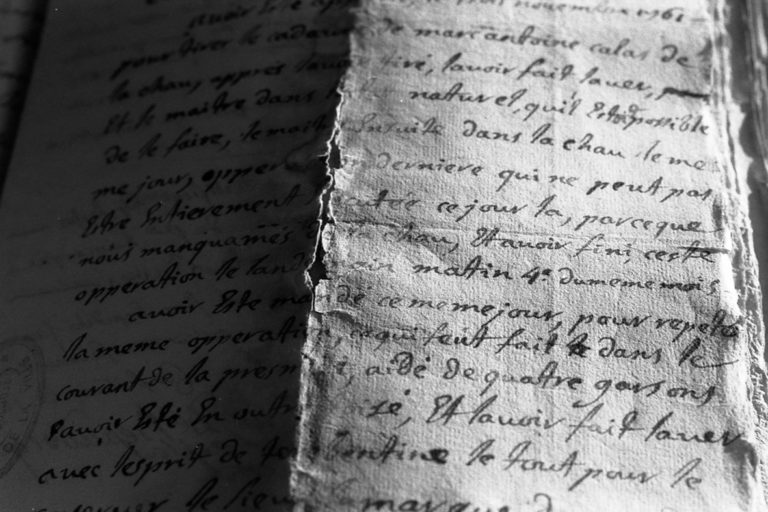 avoir Este app le trois novembre 1761
pour tirer le cadavre de marcantoine calas de
la chau, apprès lavoir tiré, lavoir fait laver,
Et le maitre dans naturel, quil Est possible
de le faire, le maitre Ensuite dans la chau le me
me jour, opper derniere qui ne peut pas
Estre Entierement ce jour la, parceque
nous manquames chau, Et avoir fini ceste
opperation le lendemain matin 4e du meme mois
avoir Este mandé ce meme jour, pour repeter
la meme opperation, ce qui feut fait dans le
courant de la aidé de quatre garsons
Lavoir Esté En outre Et lavoir fait laver
avec lesprit de terebentine le tout pour le
le